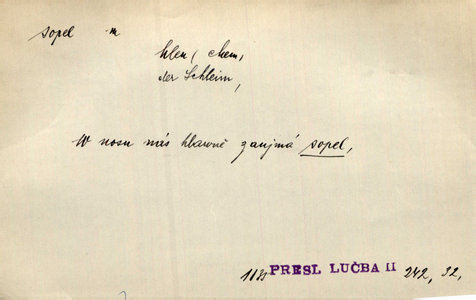 sopel m
hlen (chem,
der Schleim,
W nosu nás hlawně zaujmá sopel,
1835 PRESL LUČBA II 242, 32,